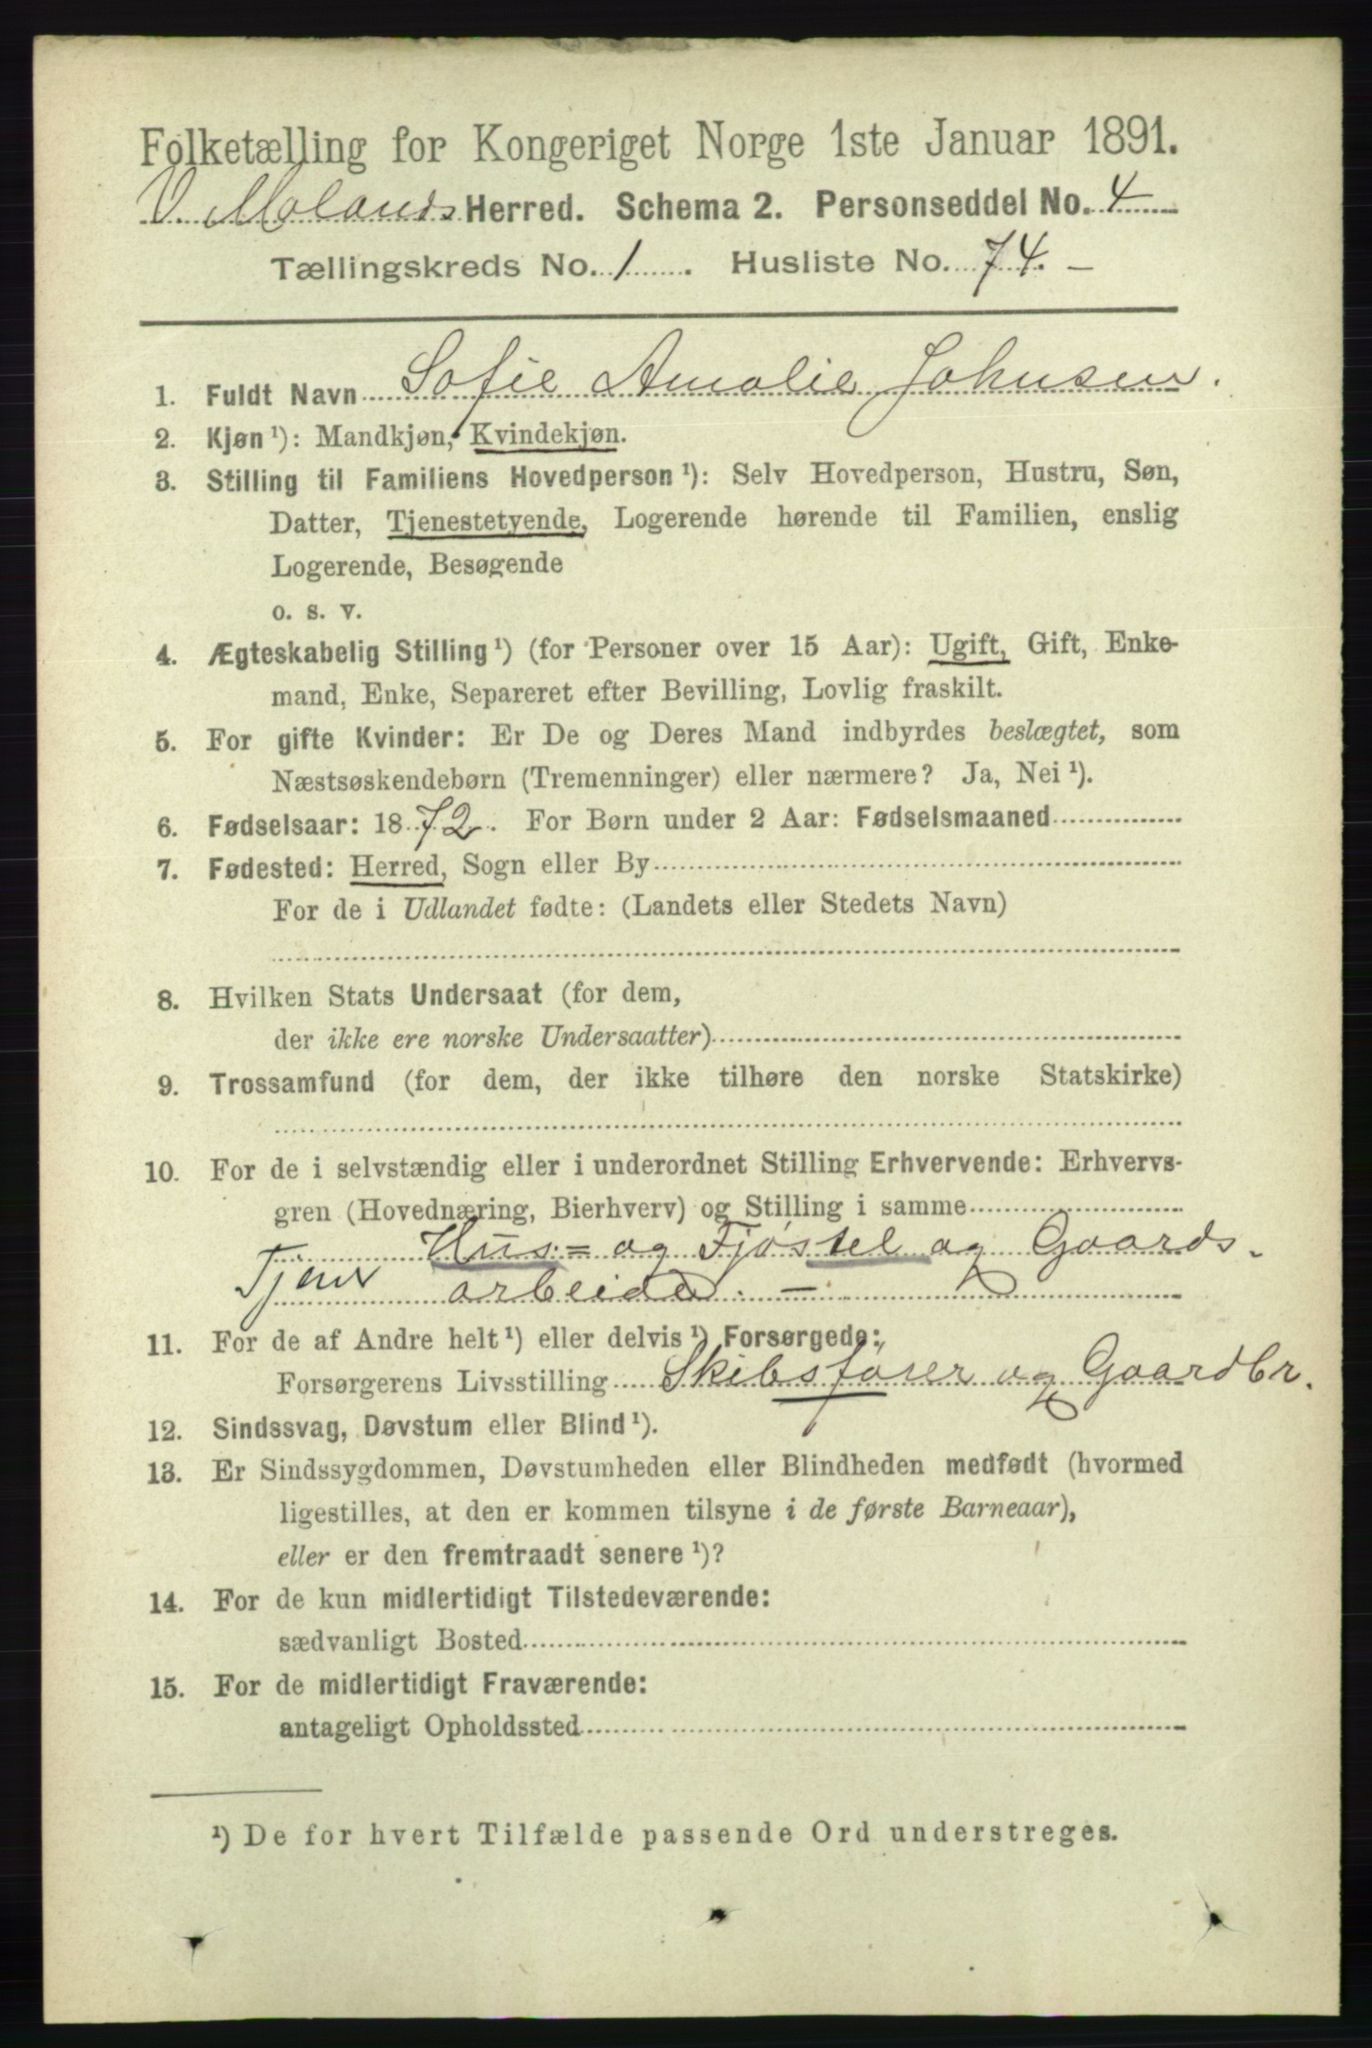 Folketælling for Kongeriget Norge 1ste Januar 1891.
V. Molands Herred. Schema 2. Personseddel No. 4
Tællingskreds No. 1. Husliste No. 74.-
1. Fuldt Navn Sofie Amalie Johnsen.
2. Kjøn ¹): Mandkjøn, Kvindekjøn.
3. Stilling til Familiens Hovedperson ¹): Selv Hovedperson, Hustru, Søn,
Datter, Tjenestetyende, Logerende hørende til Familien, enslig
Logerende, Besøgende
o. s. v.
4. Ægteskabelig Stilling ¹) (for Personer over 15 Aar): Ugift, Gift, Enke-
mand, Enke, Separeret efter Bevilling, Lovlig fraskilt.
5. For gifte Kvinder: Er De og Deres Mand indbyrdes beslægtet, som
Næstsøskendebørn (Tremenninger) eller nærmere? Ja, Nei ¹).
6. Fødselsaar: 1872. For Børn under 2 Aar: Fødselsmaaned
7. Fødested: Herred, Sogn eller By
For de i Udlandet fødte: (Landets eller Stedets Navn)
8. Hvilken Stats Undersaat (for dem,
der ikke ere norske Undersaatter)
9. Trossamfund (for dem, der ikke tilhøre den norske Statskirke)
10. For de i selvstændig eller i underordnet Stilling Erhvervende: Erhvervs-
gren (Hovednæring, Bierhverv) og Stilling i samme
Hus= og Fjøstel og Gaards-
Tjener arbeide. -
11. For de af Andre helt ¹) eller delvis ¹) Forsørgede:
Forsørgerens Livsstilling Skibsfører og Gaardbr.
12. Sindssvag, Døvstum eller Blind ¹).
13. Er Sindssygdommen, Døvstumheden eller Blindheden medfødt (hvormed
ligestilles, at den er kommen tilsyne i de første Barneaar),
eller er den fremtraadt senere ¹)?
14. For de kun midlertidigt Tilstedeværende:
sædvanligt Bosted
15. For de midlertidigt Fraværende:
antageligt Opholdssted
¹) De for hvert Tilfælde passende Ord understreges.